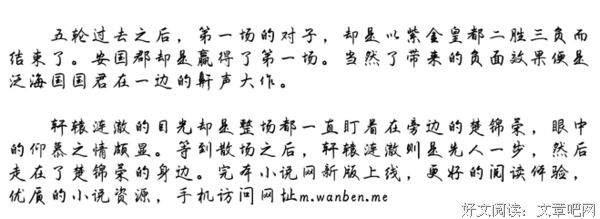 五轮过去之后，第一场的对子，却是以紫金皇都二胜三负而
结束了。安国郡却是赢得了第一场。当然了带来的负面效果便是
泛海国国君在一边的鼾声大作。
轩辕涟澈的目光却是整场都一直盯着在旁边的楚锦荣，眼中
的仰慕之情颇显。等到散场之后，轩辕涟澈则是先人一步，然后
走在了楚锦荣的身边。完本小说网新版上线，更好的阅读体验，
优质的小说资源，手机访问网址m.wanben.me
好文阅读：文章吧网